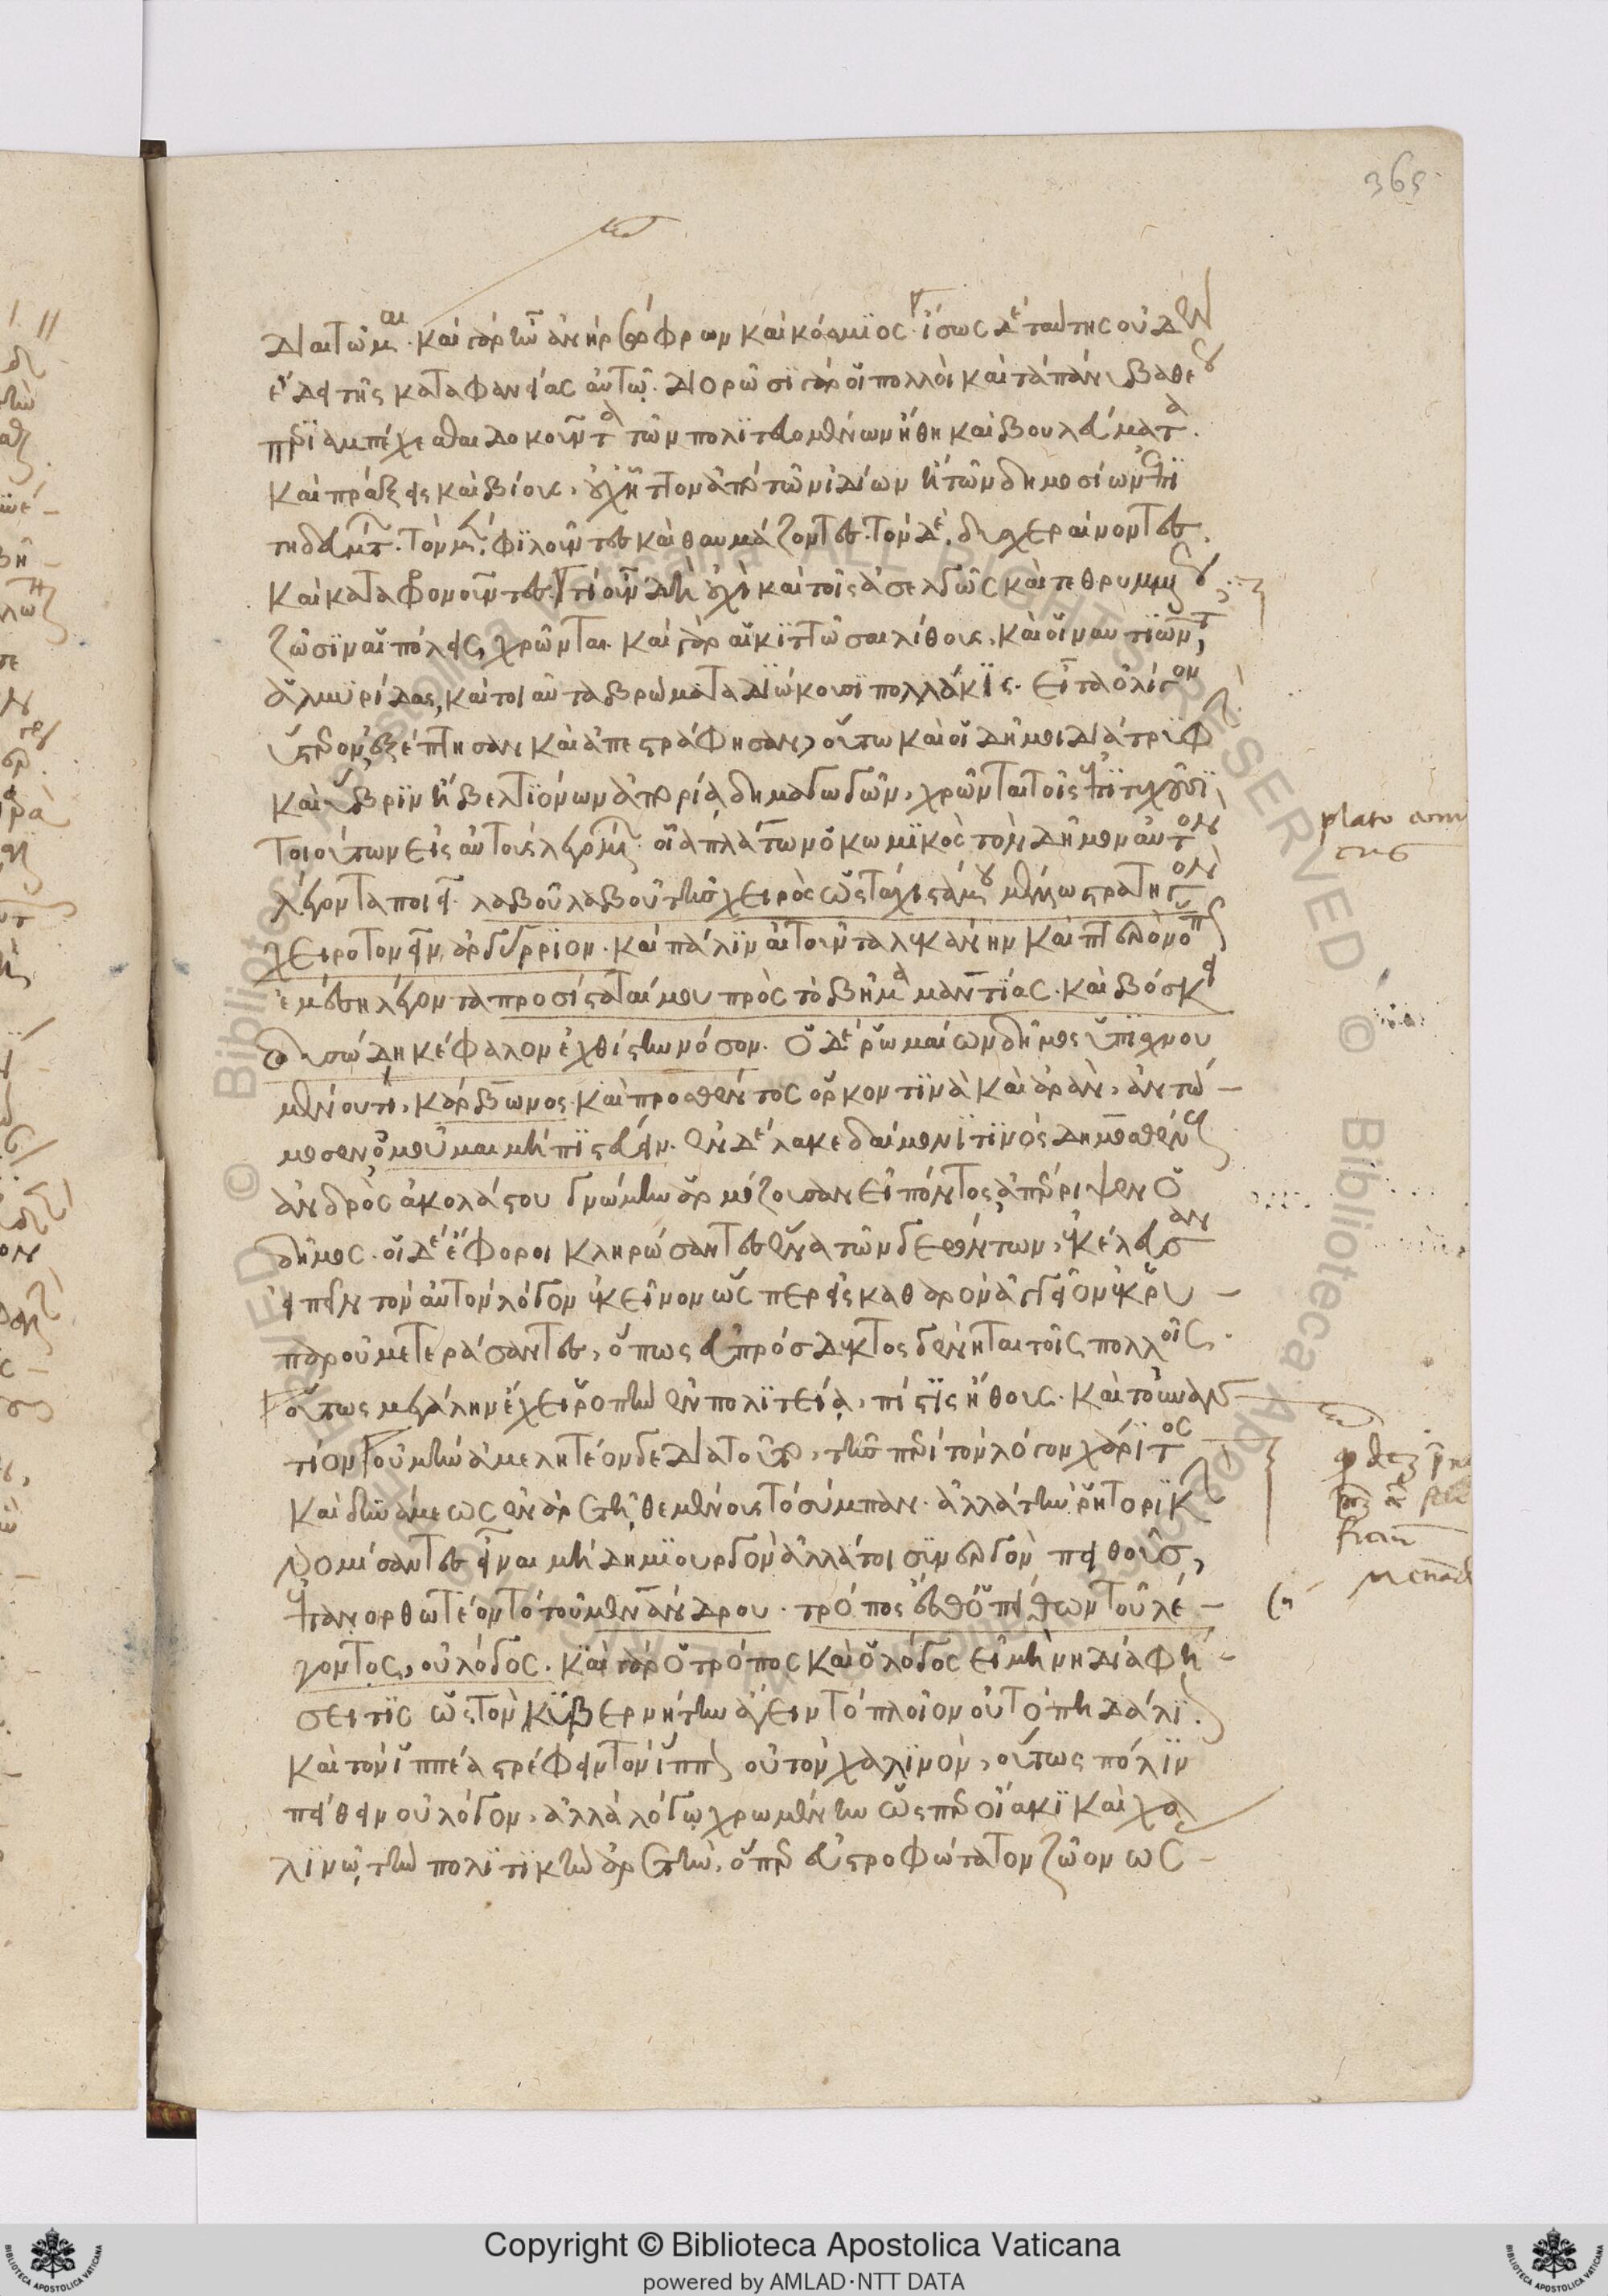 διαιτῶμαι. καὶ γὰρ ἦν ἀνὴρ σώφρων καὶ κόσμιος. ἴσως δὲ ταύτης οὐδὲν
ἔδει τῆς καταφανείας αὐτῷ. διορῶσι γὰρ οἱ πολλοὶ καὶ τὰ πάνυ βαθέως
περιαμπέχεσθαι δοκοῦντα τῶν πολιτευομένων ἤθη καὶ βουλεύματα.
καὶ πράξεις καὶ βίους, οὐχ ἧττον ἀπὸ τῶν ἰδίων ἢ τῶν δημοσίων ἐπι
τηδευμάτων. τὸν μὲν, φιλοῦντες καὶ θαυμάζοντες. τὸν δὲ, δυσχεραίνοντες.
καὶ καταφρονοῦντες. τί οὖν δὴ οὐχὶ καὶ τοῖς ἀσελγῶς καὶ τεθρυμμένως
ζῶσιν αἱ πόλεις χρῶνται. καὶ γὰρ αἱ κιττῶσαι λίθους, καὶ οἱ ναυτιῶντες,
ἁλμυρίδας, καὶ τοιαῦτα βρώματα διώκουσι πολλάκις. εἶτα ὀλίγον
ὕστερον ἐξέπτησαν καὶ ἀπεστράφησαν, οὕτω καὶ οἱ δῆμοι διὰ τρυφὴν
καὶ ὕβριν ἢ βελτιόνων ἀπορία δημαγωγῶν, χρῶνται τοῖς ἐπιτυχοῦσι,
τοιούτων εἰς αὐτοὺς λεγομένων. οἷα πλάτων ὁ κωμικὸς τὸν δῆμον αὐτὸν
λέγοντα ποιεῖ. λαβοῦ λαβοῦ τῆς χειρὸς ὡς τάχιστά μου μέλλω στρατηγὸν
χειροτονεῖν ἀργύρριον. καὶ πάλιν αἰτοῦντα λεκάνην καὶ πτερὸν ὅπως
ἐμέσῃ λέγοντα προσίσταταί μου πρὸς τὸ βῆμα μαντίας. καὶ βόσκει
δυσώδη κέφαλον ἐχθίστην νόσον. ὁ δὲ ῥωμαίων δῆμος ὑπισχνου
μένου τι, κάρβωνος καὶ προσθέντος ὅρκον τινὰ καὶ ἀρὰν, ἀντώ
μοσεν ὁμοῦ μὴ πιστεύειν. ἐν δὲ λακεδαίμονι τινὸς δημοσθένους
ἀνδρὸς ἀκολάστου γνώμην ἁρμόζουσαν εἰπόντος ἀπέρριψεν ὁ
δῆμος. οἱ δὲ ἔφοροι κληρώσαντες ἕνα τῶν γερόντων, ἐκέλευσαν
εἰπεῖν τὸν αὐτὸν λόγον ἐκεῖνον ὥσπερ εἰς καθαρὸν ἀγγεῖον ἐκ ῥυ
παροῦ μετεράσαντες, ὅπως εὐπρόσδεκτος γένηται τοῖς πολλοῖς.
οὕτως μεγάλην ἔχει ῥοπὴν ἐν πολιτείᾳ, πίστις ἤθους. καὶ τοὐναν
τίον οὐ μὴν ἀμελητέον γε διὰ τοῦτο, τῆς περὶ τὸν λόγον χάριτος
καὶ δυνάμεως ἐν ἀρετῇ θεμένους τὸ σύμπαν. ἀλλὰ τὴν ῥητορικὴν
νομίσαντες εἶναι μὴ δημιουργὸν ἀλλά τοι συνεργὸν πειθοῦς,
ἐπανορθωτέον τὸ τοῦ μενάνδρου. τρόπος ἔσθ' ὁ πείθων τοῦ λέ
γοντος, οὐ λόγος. καὶ γὰρ ὁ τρόπος καὶ ὁ λόγος εἰ μὴ νὴ δία φή
σει τις ὡς τὸν κυβερνήτην ἄγειν τὸ πλοῖον οὐ τὸ πηδάλιον.
καὶ τὸν ἱππέα στρέφειν τὸν ἵππον οὐ τὸν χαλινὸν, οὕτως πόλιν
πείθειν οὐ λόγον, ἀλλὰ λόγῳ χρωμένην ὥσπερ οἴακι καὶ χα
λινῷ, τὴν πολιτικὴν ἀρετὴν, ᾗπερ εὐστροφώτατον ζῶον ὡς
Copyright © Biblioteca Apostolica Vaticana
powered by AMLAD·NTT DATA